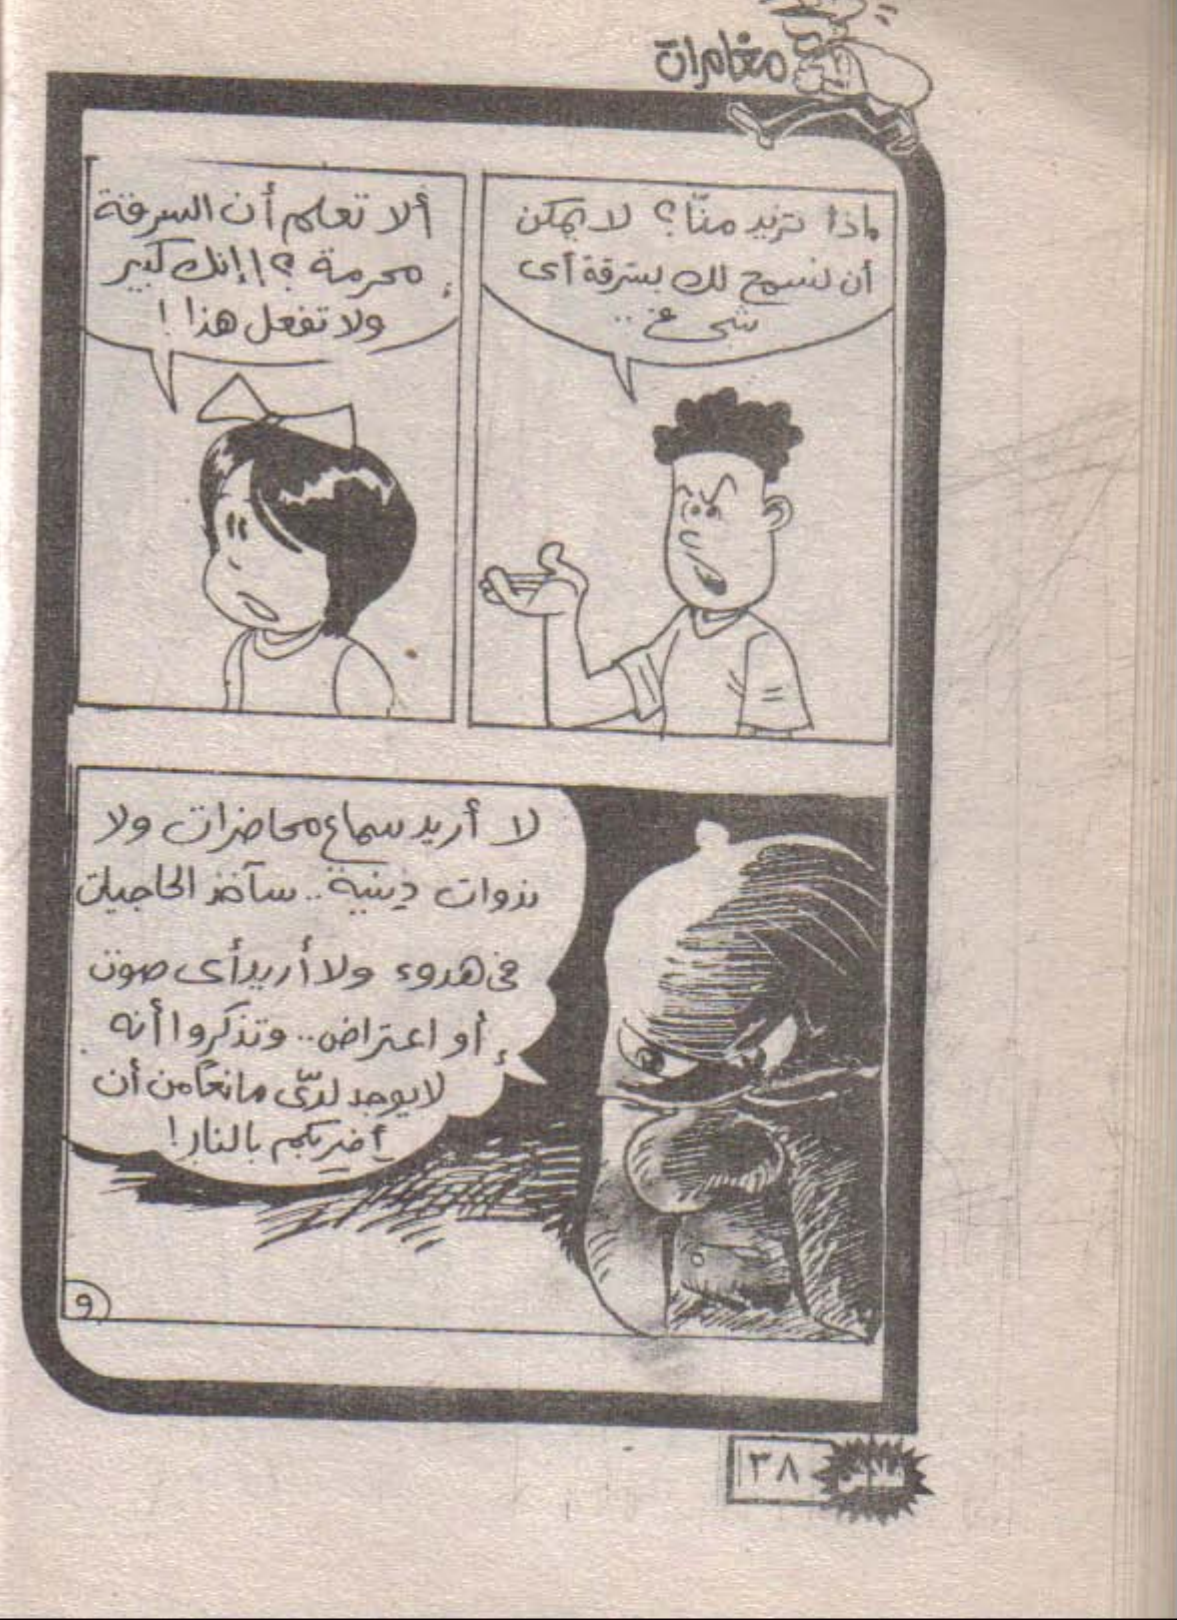 مغامرات
ماذا تريد منّا؟ لا يمكن
أن نسمح لك بسرقة أى
شىء..
ألا تعلم أن السرقة
محرمة؟! إنك كبير
ولا تفعل هذا!
لا أريد سماع محاضرات ولا
ندوات دينية.. سآخذ الحاجيات
فى هدوء ولا أريد أى صوت
أو اعتراض.. وتذكروا أنه
لا يوجد لدىّ مانعًا من أن
أضربكم بالنار!
٩
٣٨